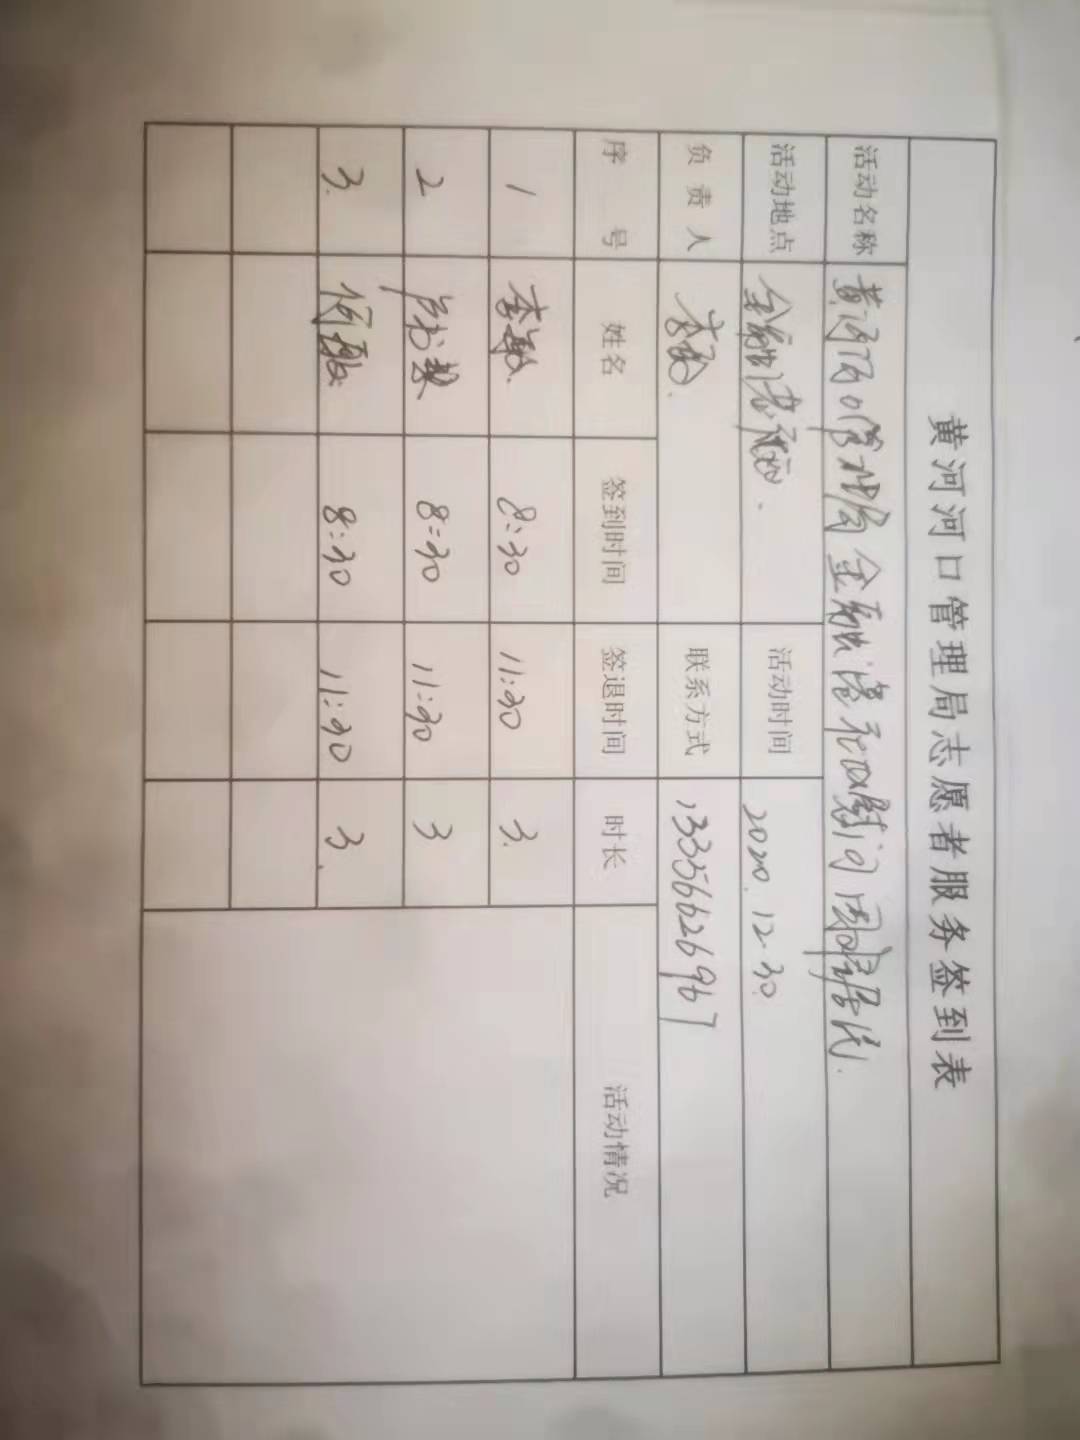 黄河河口管理局志愿者服务签到表
活动名称 黄河河口管理局金融港社区慰问困难居民.
活动地点 金融港社区. 活动时间 2020.12.30.
负责人 李敏. 联系方式 13356626967
序号 姓名 签到时间 签退时间 时长 活动情况
1 李敏. 8:30 11:30 3.
2 8:30 11:30 3
3. 8:30 11:30 3.